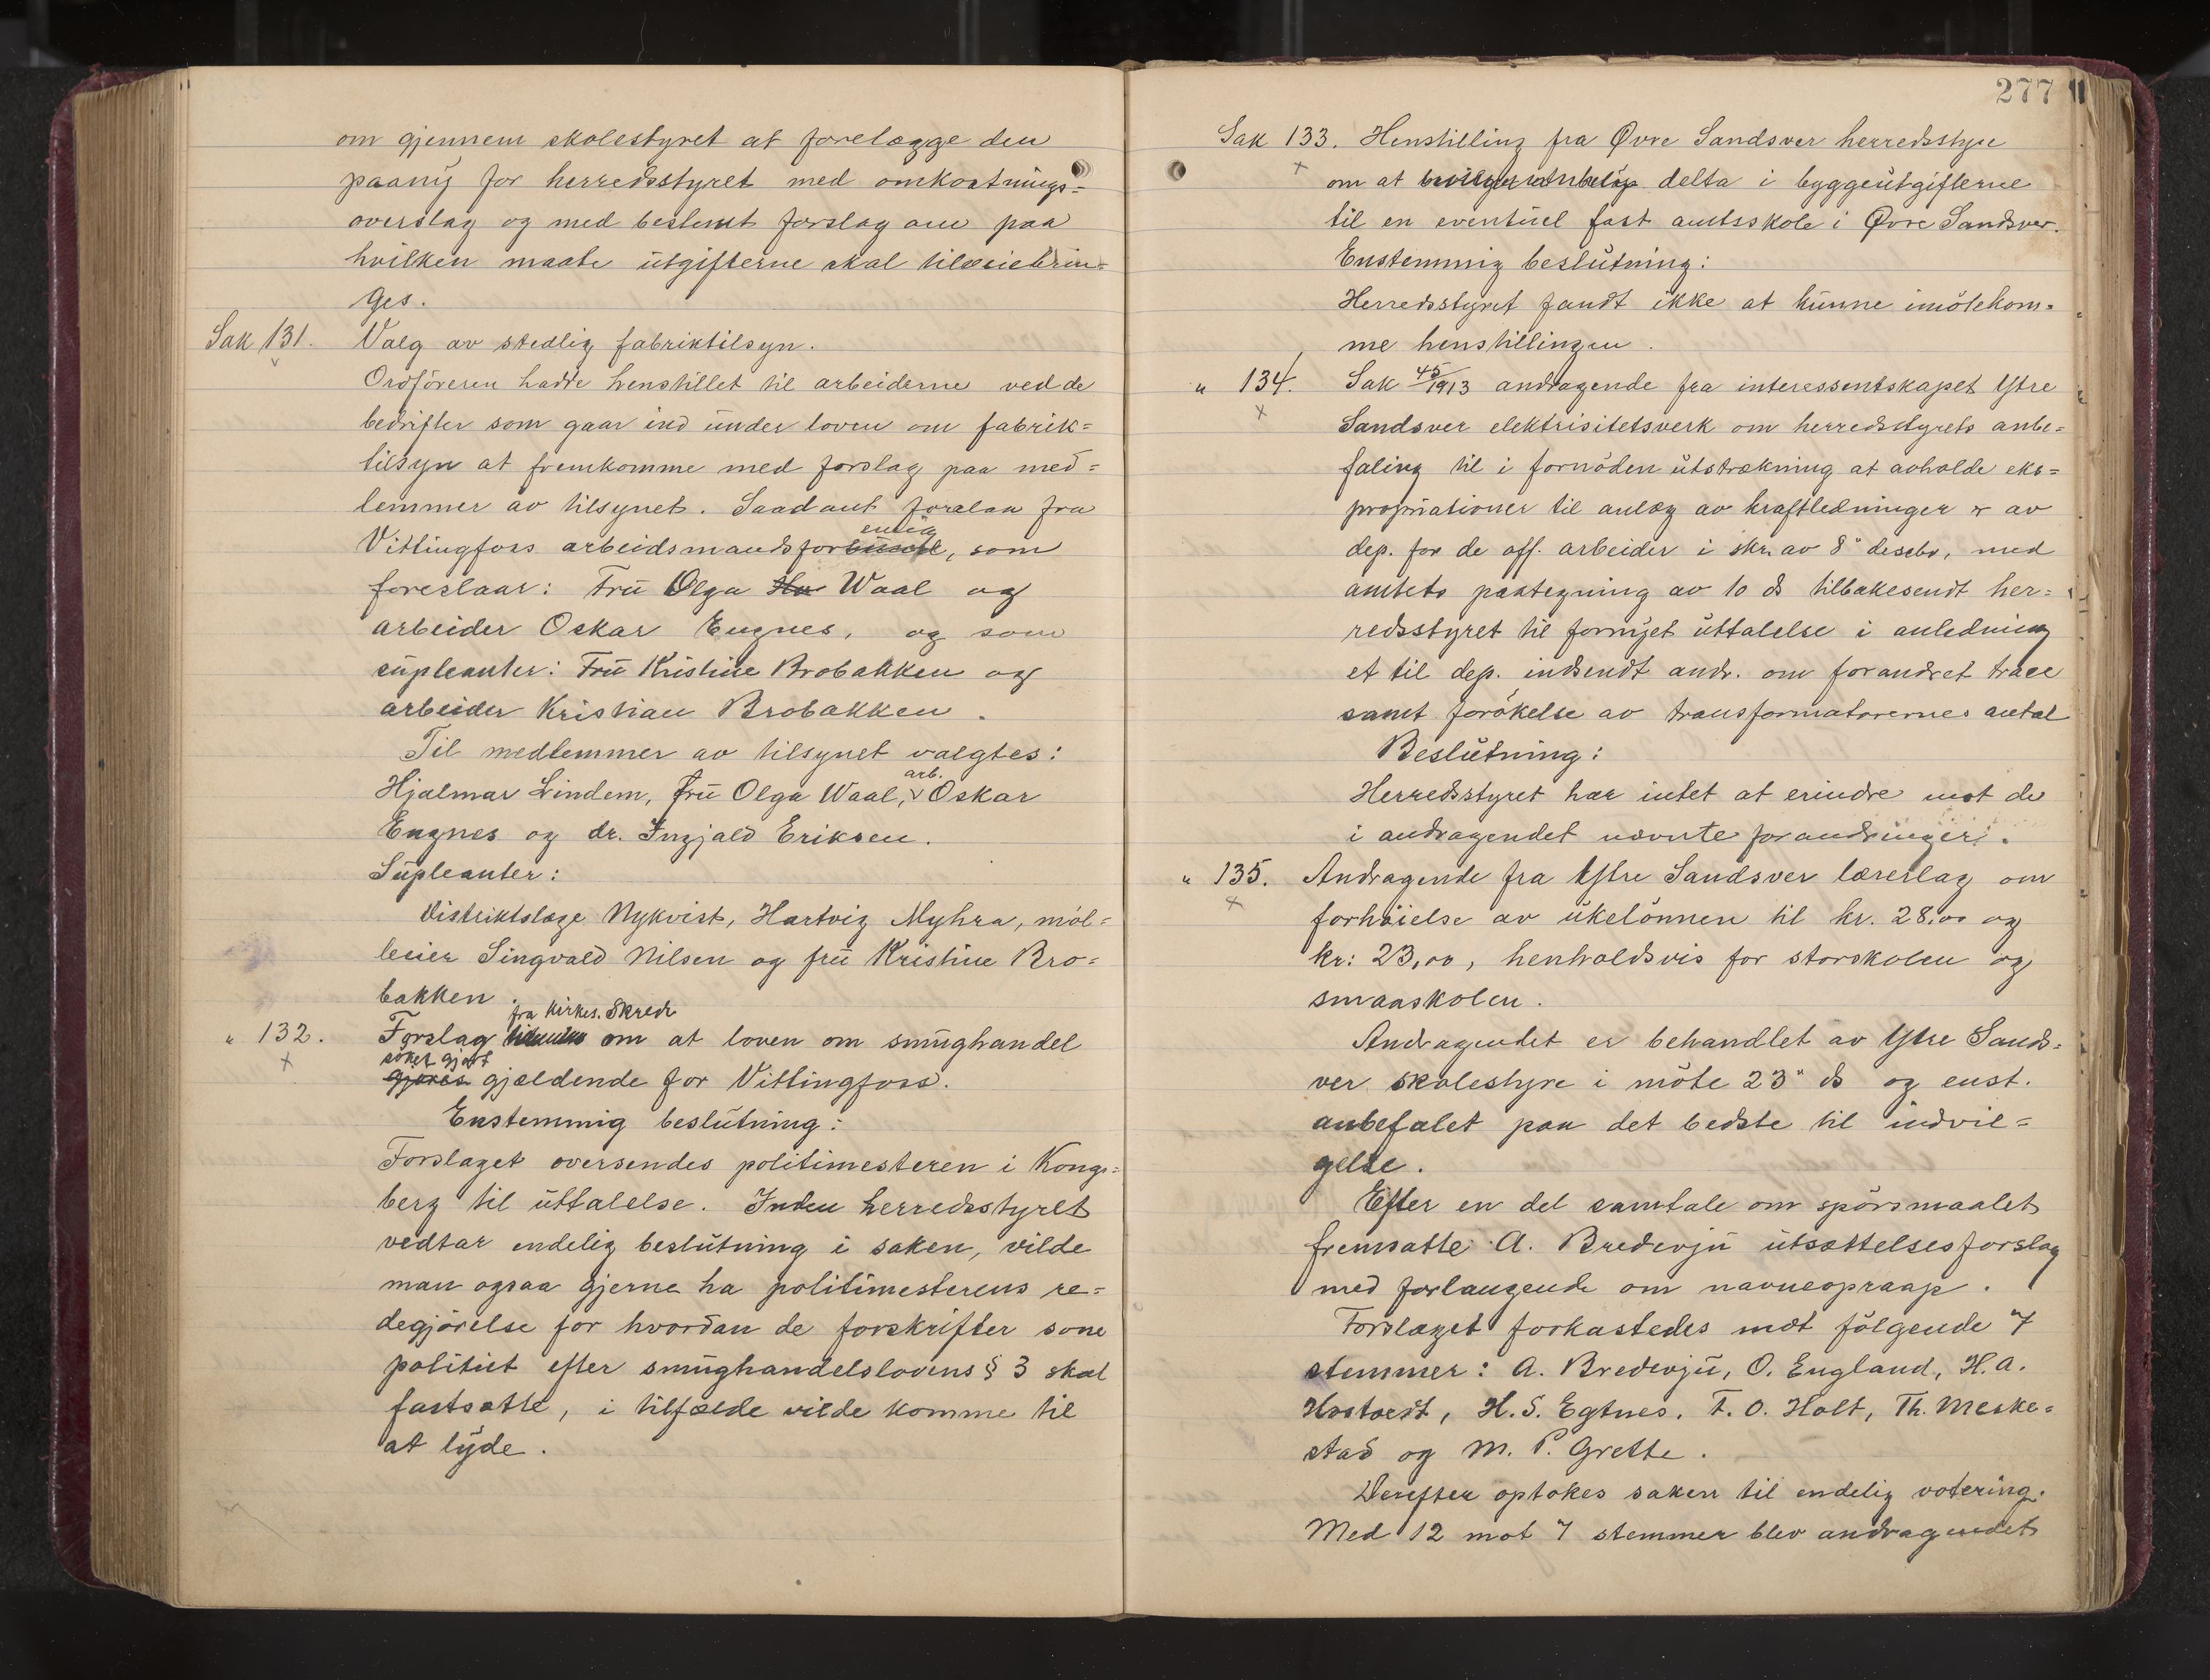 om gjennem skolestyret at forelægge den
paany for herredsstyret med omkostnings=
overslag og med bestemt forslag om paa
hvilken maate utgifterne skal tilveiebrin=
ges.
Sak 131. Valg av stedlig fabriktilsyn.
Ordföreren hadde henstillet til arbeiderne ved de
bedrifter som gaar ind under loven om fabrik=
tilsyn at fremkomme med forslag paa med=
lemmer av tilsynet. Saadant forelaa fra
enig
Vittingfoss arbeidsmandsforbund, som
foreslaar: Fru Olga Waal og
arbeider Oskar Engnes, og som
supleanter: Fru Kristine Brobakken og
arbeider Kristian Brobakken.
Til medlemmer av tilsynet valgtes:
arb.
Hjalmar Lindem, fru Olga Waal, Oskar
Engnes og dr. Ingjald Eriksen.
Supleanter:
Distriktslæge Nykvist, Hartvig Myhra, möl=
leeier Singvald Nilsen og fru Kristine Bro=
bakken.
fra Kirkes. Skredr
" 132. Forslag om at loven om smughandel
söket gjort
gjøres gjældende for Vittingfoss.
Enstemmig beslutning:
Forslaget oversendes politimesteren i Kongs=
berg til uttalelse. Inden herredsstyret
vedtar endelig beslutning i saken, vilde
man ogsaa gjerne ha politimesterens re=
degjörelse for hvordan de forskrifter som
politiet efter smughandelslovens § 3 skal
fastsætte, i tilfælde vilde komme til
at lyde.
277
Sak 133. Henstilling fra Øvre Sandsver herredsstyre
om at delta i byggeutgifterne
til en eventuel fast amtsskole i Øvre Sandsver.
Enstemmig beslutning:
Herredsstyret fandt ikke at kunne imötekom=
me henstillingen.
" 134. Sak 45/1913 andragende fra interessentskapet Ytre
Sandsver elektrisitetsverk om herredsstyrets anbe=
faling til i fornöden utstrækning at avholde eks=
propriationer til anlæg av kraftledninger er av
dep. for de off. arbeider i skr. av 8" desebr. med
amtets paategning av 10 ds tilbakesendt her=
redsstyret til fornyet uttalelse i anledning
et til dep. indsendt andr. om forandret trace
samt forökelse av transformatorernes antal
Beslutning:
Herredsstyret har intet at erindre mot de
i andragendet nævnte forandringer.
" 135. Andragende fra Ytre Sandsver lærerlag om
forhöielse av ukelönnen til kr. 28,00 og
kr: 23,00, henholdsvis for storskolen og
smaaskolen.
Andragendet er behandlet av Ytre Sands=
ver skolestyre i möte 23" ds og enst.
anbefalet paa det bedste til indvil=
gelse.
Efter en del samtale om spörsmaalet
fremsatte A. Bredevju utsættelsesforslag
med forlangende om navneopraap.
Forslaget forkastedes mot fölgende 7
stemmer: A. Bredevju, O. England, H. A.
Hostvedt, H. S. Egtnes, T. O. Holt, Th. Meske=
stad og M. P. Grette.
Derefter optokes saken til endelig votering.
Med 12 mot 7 stemmer blev andragendet